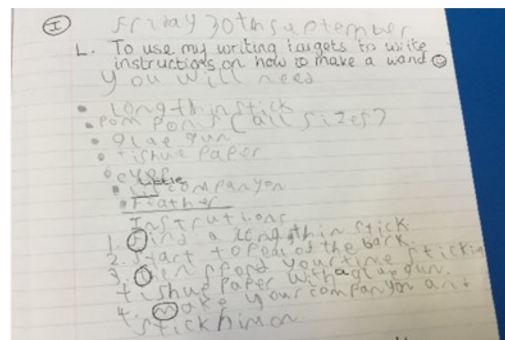 I
Friday 30th september
L. To use my writing targets to write
instructions on how to make a wand
you will need
long thin stick
pom poms (all sizes)
glue gun
tishue paper
eyes
little companyon
Feather
Instrutions
1. Find a long thin stick
2. Start to peal of the bark.
3. Then spend your time sticking
tishue paper with a glue gun.
4. Make your companyon and
stick him on